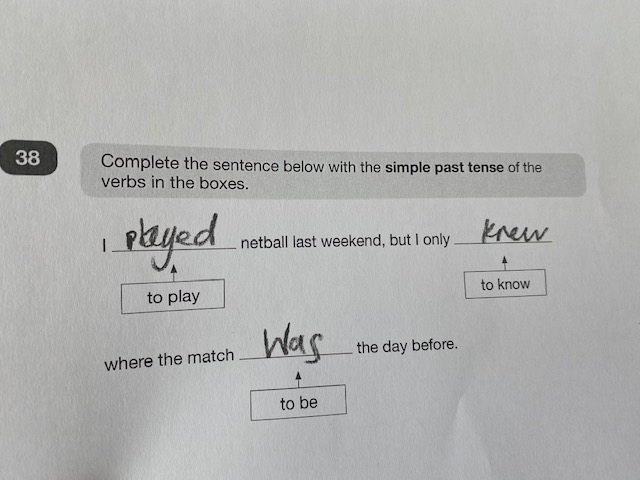 38
Complete the sentence below with the simple past tense of the
verbs in the boxes.
I played netball last weekend, but I only knew
to play
to know
where the match Was the day before.
to be